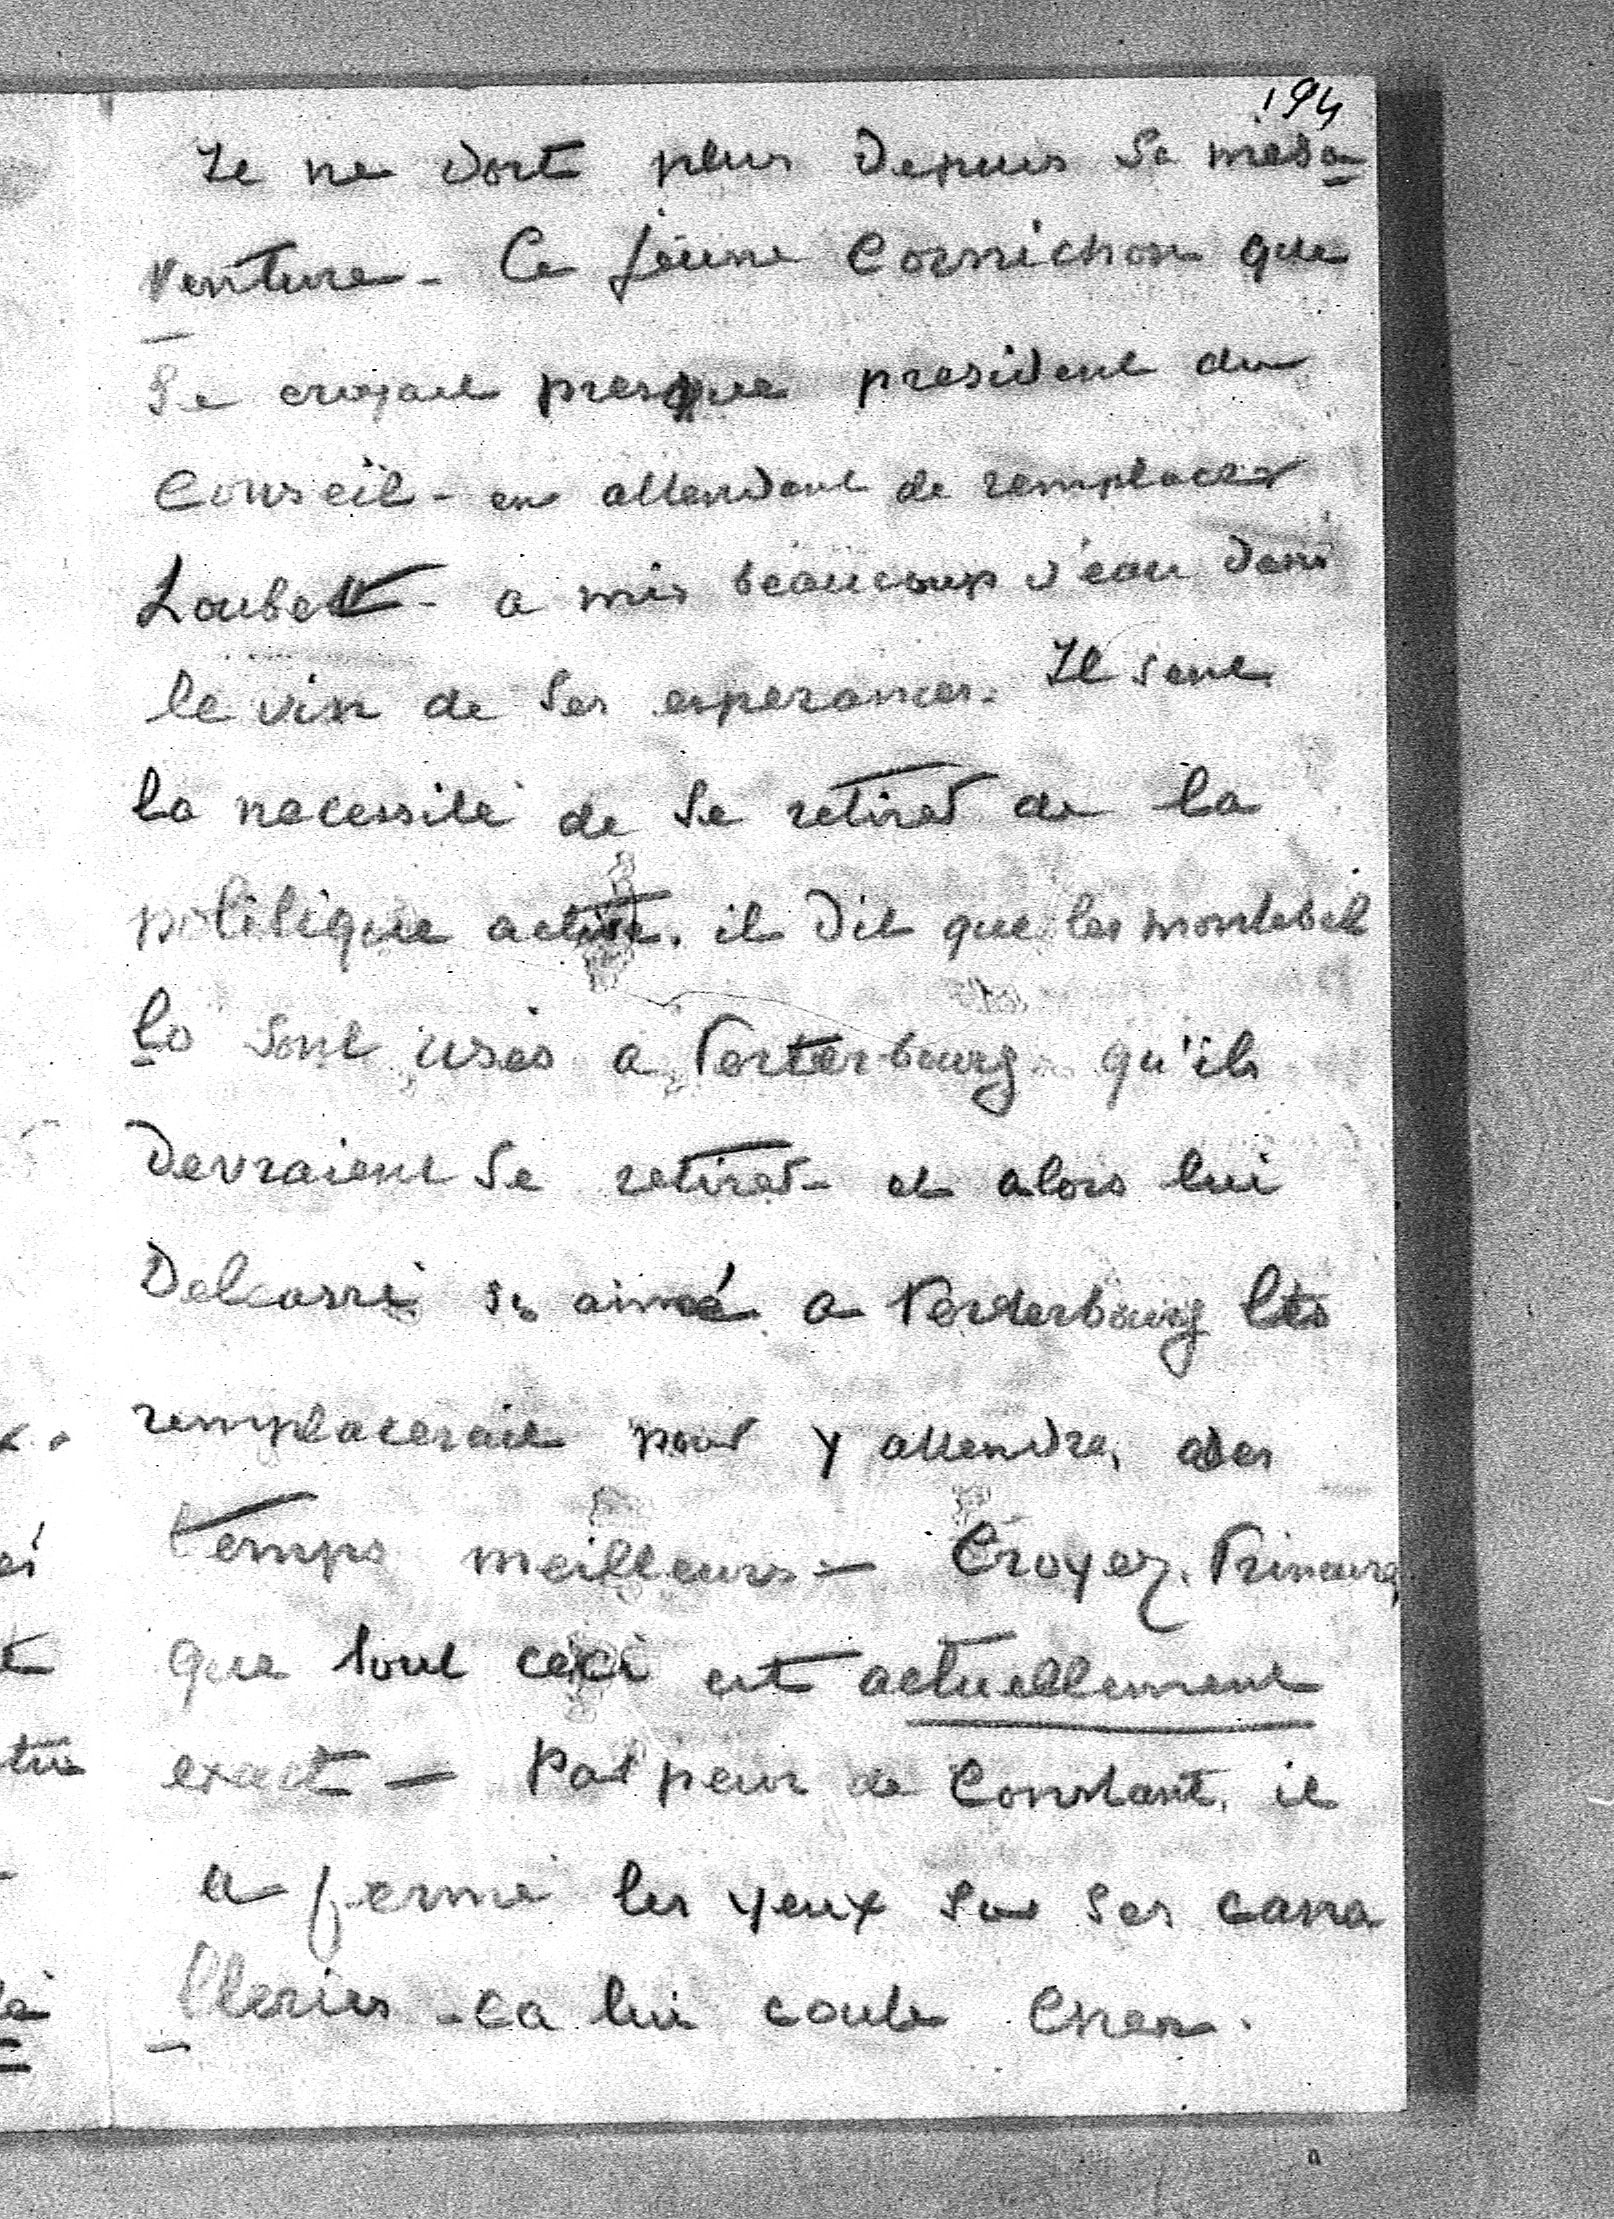 194
Il ne dort plus depuis sa mésa
venture - Ce jeune Cornichon que
se croyait presque president du
Conseil - en attendant de remplacer
Loubet - a mis beaucoup d'eau dans
le vin de ses esperances. Il sent
la necessité de se retirer de la
politique active. il dit que les montebel
lo sont usés a Petersbourg qu'ils
devraient se retirer - et alors lui
Delcassé si aimé a Petersbourg les
remplacerait pour y attendre des
temps meilleurs - Croyez
que tout ceci est actuellement
exact - Par peur de Constant, il
a fermé les yeux sur ses cana
lleries - ca lui coute cher.